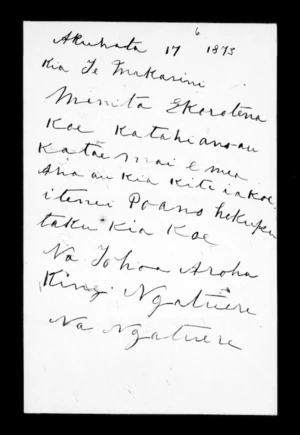 Akuhata 17 1873
6
Kia Te Makarini
Menita Ekorotena
Koe Katahi anoau
Katae mai e mea
Ana au kia kite iakoe
itenei Poano hekupu
taku kia Koe
Na Tohoa Aroha
Kingi Ngatuere
Na Ngatuere